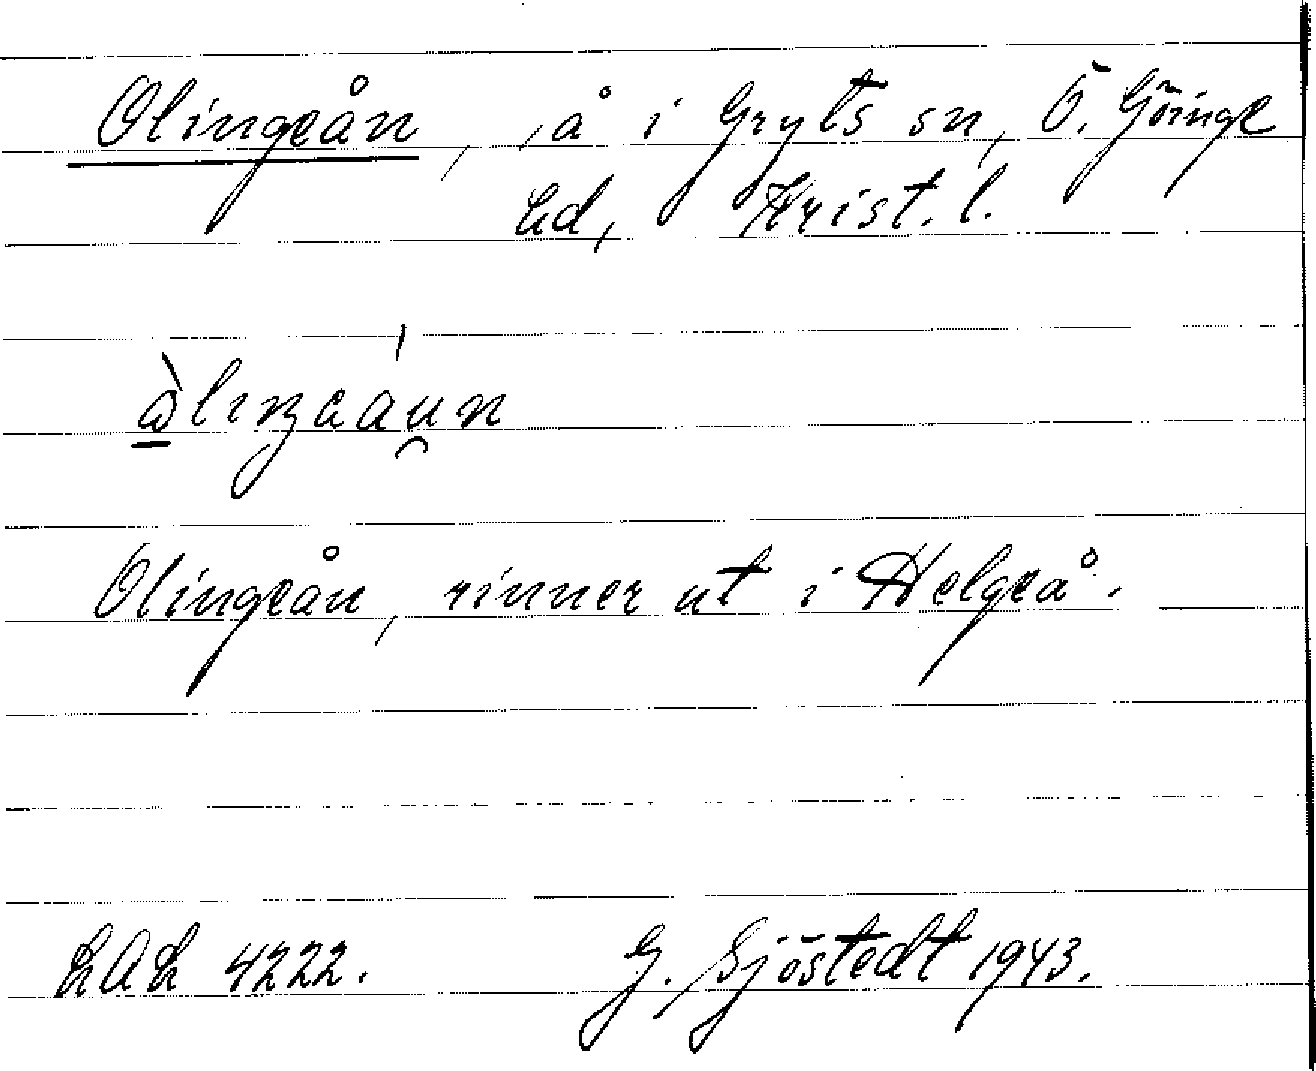 Olingeån, å i Gryts sn, Ö. Göinge
hd, Krist. l.
Olingeån, rinner ut i Helgeå.
LAL 4222. G. Sjöstedt 1943.